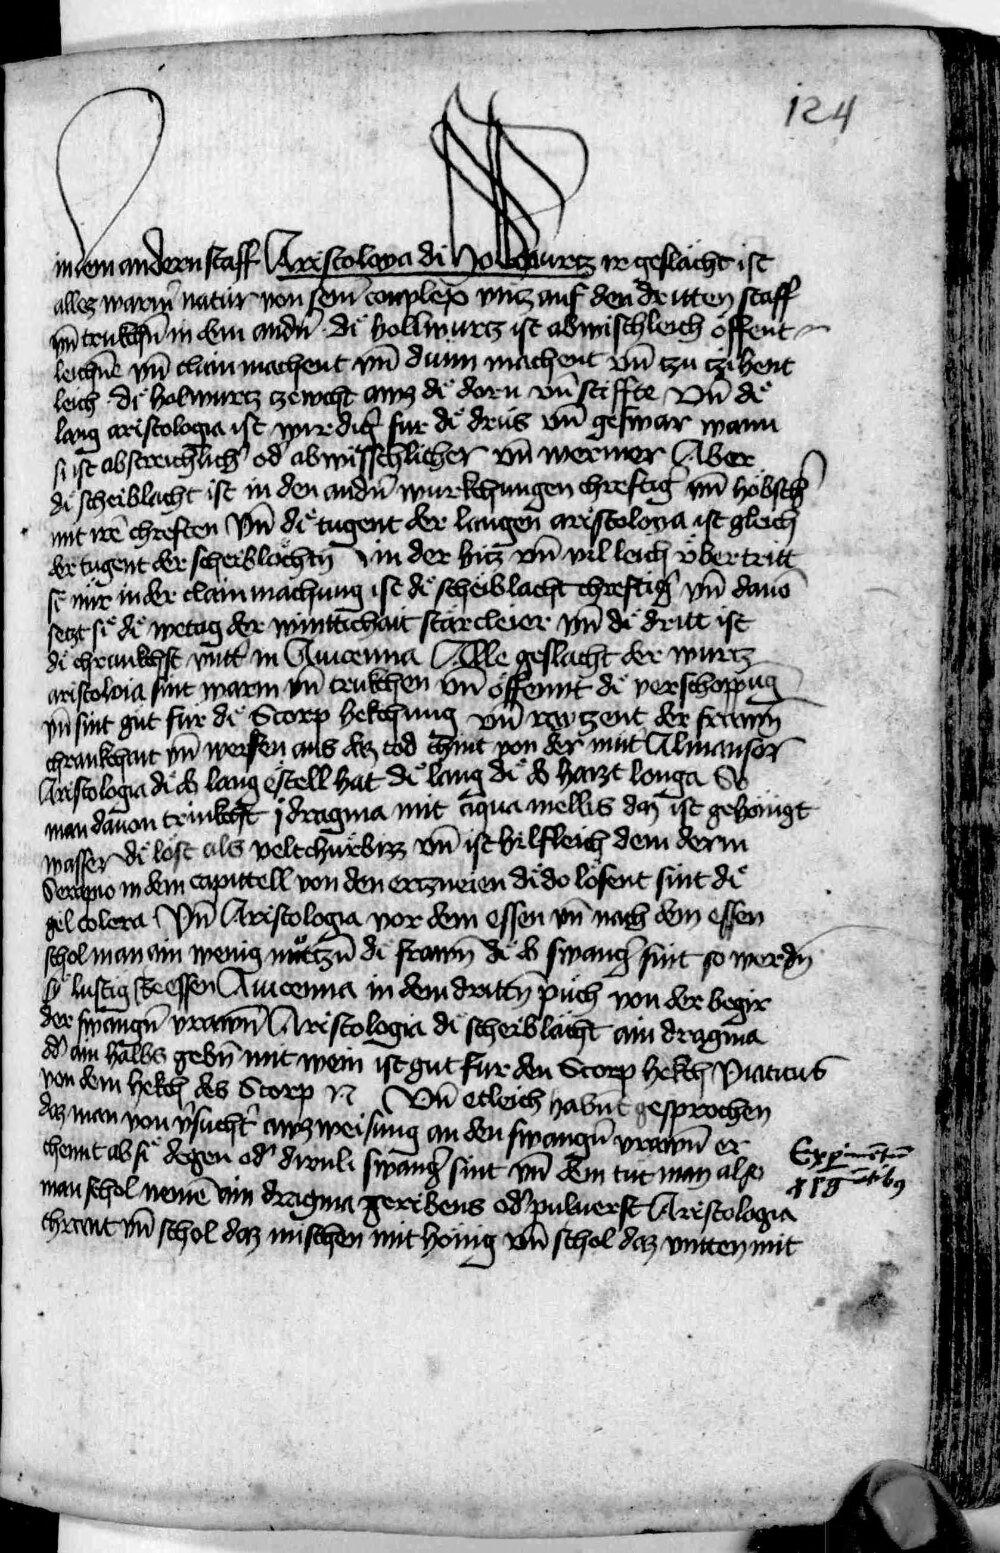 124
in dem andern staff Aristoloya di Holwurtz ir geslächt ist
allez warm̄ natur von sem̄ complex vntz auf den dritten staff
vn̄ trukchn̄ in dem andn̄ · di hollwurtz ist abwischleich offent
leichn̄ vn̄ clain machent vn̄ dünn machent vn̄ tzu tzihent
leich · di holwurtz tzewcht awz di dorn vn̄ stiffte Vn̄ di
lang aristologia ist wirdig̉ fur di drüs vn̄ geswar wann
si ist abstreichlich̉ od̉ abwisschlicher vn̄ wermer Aber
di scheiblacht ist in den andn̄ wurkchungen chreftig̉ vn̄ höbsch̉
mit irē chreften Vn̄ di tugent der langen aristologia ist gleich
der tugent der scheiblochtn̄ in der hitz vn̄ vil leich vbertritt
se nür in der clain machung ist di scheiblacht chreftig̉ vn̄ dauō
setzt si di wetag der winttichait starcleier vn̄ di dritt ist
di chrankchst vntt̉ in Auicenna Alle geslacht der wurtz
aristoloia sint warm vn̄ trukchen vn̄ öffennt di verschoppūg
vn̄ sint gut für di Scorp hekchung vn̄ raytzent der frawn̄
chrankchait vn̄ werfen aus daz tod chint von der mut̉ Almansor
Aristologia di do lang estell hat di lang di do haizt longa So
man dauon trinkcht j dragma mit aqua mellis daz ist gehönigt
wasser di löst als veltchürbizz vn̄ ist hilfleich dem derm
Serapino in dem capittell von den ertzneien di do lösent sint di
gel colera Vn̄ Aristologia vor dem essen vn̄ nach dem essen
schol man ain wenig nutzn̄ di frawn̄ di do swang̉ sint so werdn̄
sy lustig tze essen Auicenna in dem drittn̄ püch von der begir
der swangn̄ vrawn̄ Aristologia di scheiblächt ain dragma
od̉ ain halbs gebn̄ mit wein ist gut fur den Scorp hekch Viaticus
von dem hekch des Scorp Vn̄ etleich habnt gesprochen
daz man von v̉sucht̉ awzweisung an den swangn̄ vrawn̄ er
chennt ab si degen od̉ dirnli swang̉ sint vn̄ dem tut man also
man schol nemē ain dragma zeribens od̉ puluerst Aristologia
chrawt vn̄ schol daz mischen mit hönig vn̄ schol daz vnttenmit
Exp̄imētum
p̄ḡntibus